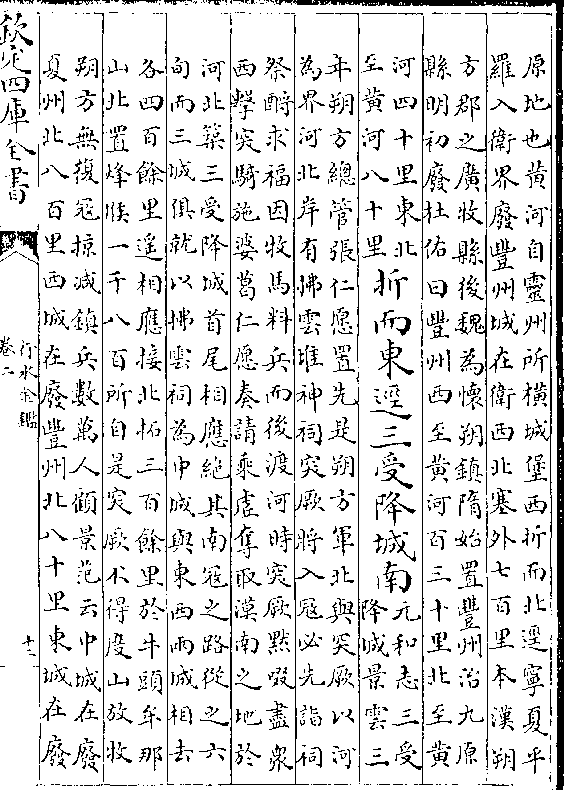 原地也黃河自靈州所橫城堡西折而北逕寧夏平
羅入衛界廢豐州城在衛西北塞外七百里本漢朔
方郡之廣牧縣後魏為懷朔鎮隋始置豐州治九原
縣明初廢杜佑曰豐州西至黃河百三十里北至黃
河四十里東北
至黃河八十里
折而東逕三受降城南
元和志三受
降城景雲三
年朔方總管張仁愿置先是朔方軍北與突厥以河
為界河北岸有拂雲堆神祠突厥將入寇必先詣祠
祭酹求福因牧馬料兵而後渡河時突厥默啜盡衆
西擊突騎施婆葛仁愿奏請乘虛奪取漠南之地於
河北築三受降城首尾相應絕其南寇之路從之六
旬而三城俱就以拂雲祠為中城與東西兩城相去
各四百餘里遥相應接北拓三百餘里於牛頭牟那
山北置烽堠一千八百所自是突厥不得度山放牧
朔方無復寇掠減鎮兵數萬人顧景范云中城在廢
夏州北八百里西城在廢豐州北八十里東城在廢
欽定四庫全書
行水金鑑
卷二
十二